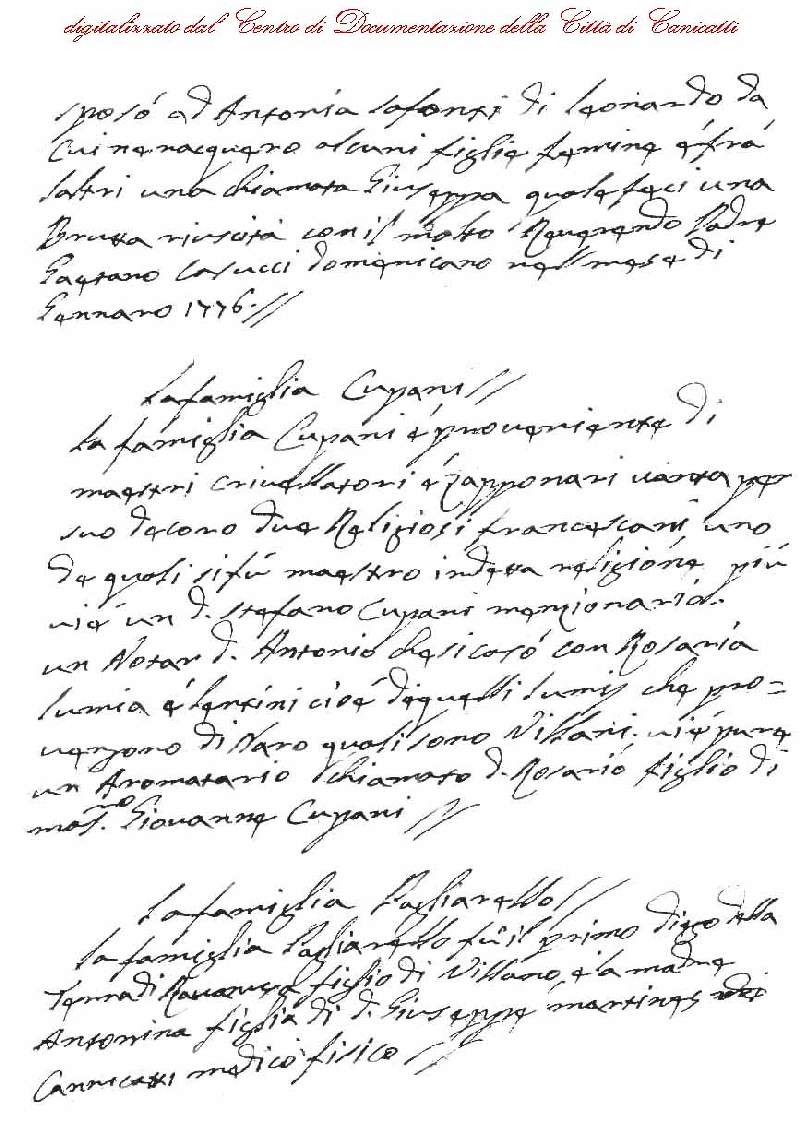 digitalizzato dal Centro di Documentazione della Città di Canicattì
sposò ad Antonia Lafonti di Leonardo da
Cui ne nacquero alcuni figlie femine é frà
laltri una chiamata Giuseppa quale feci una
Brutta riuscita con il molto Reverendo Padre
Gaetano Casucci Domenicano nell mese di
Gennaro 1776.//
La famiglia Cupani//
La famiglia Cupani é proveniente di
maestri crivellatori é zapponari vanta per
suo decoro due Religiosi francescani uno
de quali si fù maestro in detta religione più
vi é un d. Stefano Cupani menzionario.
un Notar d. Antonio che si casò con Rosaria
Lumia é Lentini cioé de quelli Lumij che pro=
vengono di Naro quali sono Villani. vi é pure
un Aromatario chiamato d. Rosario figlio di
mas.ro Giovanne Cupani //
La famiglia Pagliarello//
La famiglia Pagliarello fù il primo della
Terra di figlio di Villano é la madre
Antonina figlia di d. Giuseppe Martines
Cannicatti medico fisico //